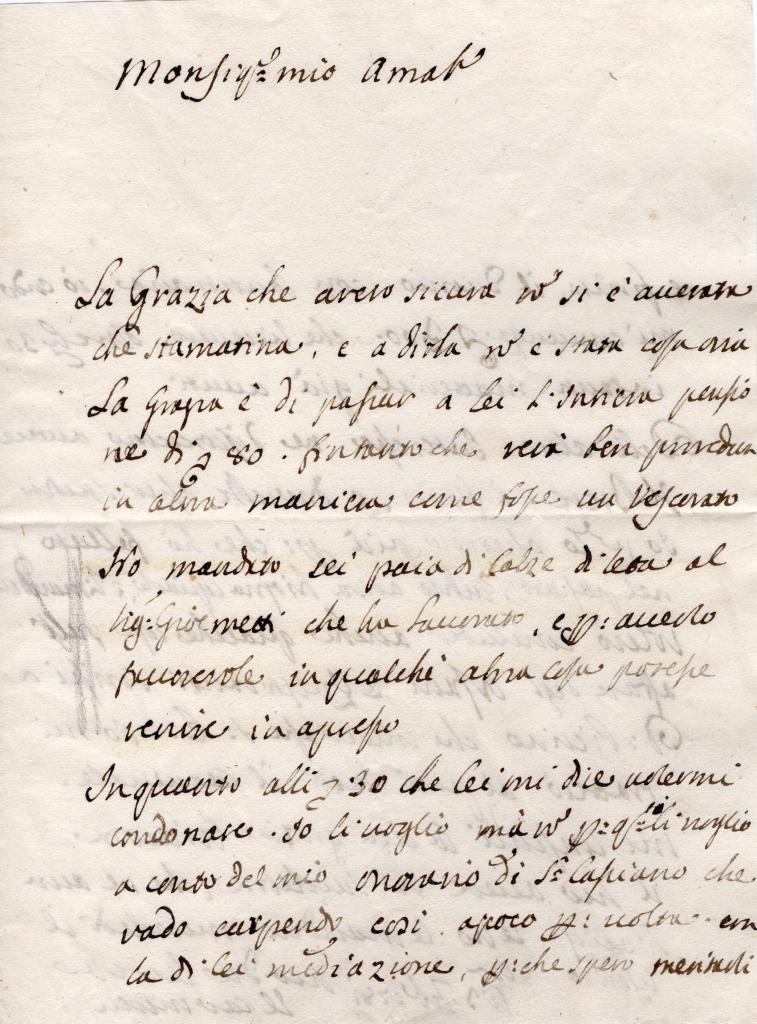 Monsig.r mio Amat.o
La Grazia che avevo sicura n. si è averata
che stamatina, e a dirla n. è stata cosa
La Grazia è di passar a lei l'Intiera pensio
ne di 80. fintanto che verà ben proveduto
in altra maniera come fosse un Vescovato
Ho mandato sei paia di Calze di seta al
Sig.: che ha lavorato, e p: averlo
favorevole in qualche altra cosa potesse
venire in apresso
In quanto alli 30 che lei mi dice volermi
condonare. Io li voglio mà n. p: q.sto li voglio
a conto del mio onorario di S. Casiano che
vado carpendo così apoco p: volta con
la di lei mediazione, p:che spero meritarli